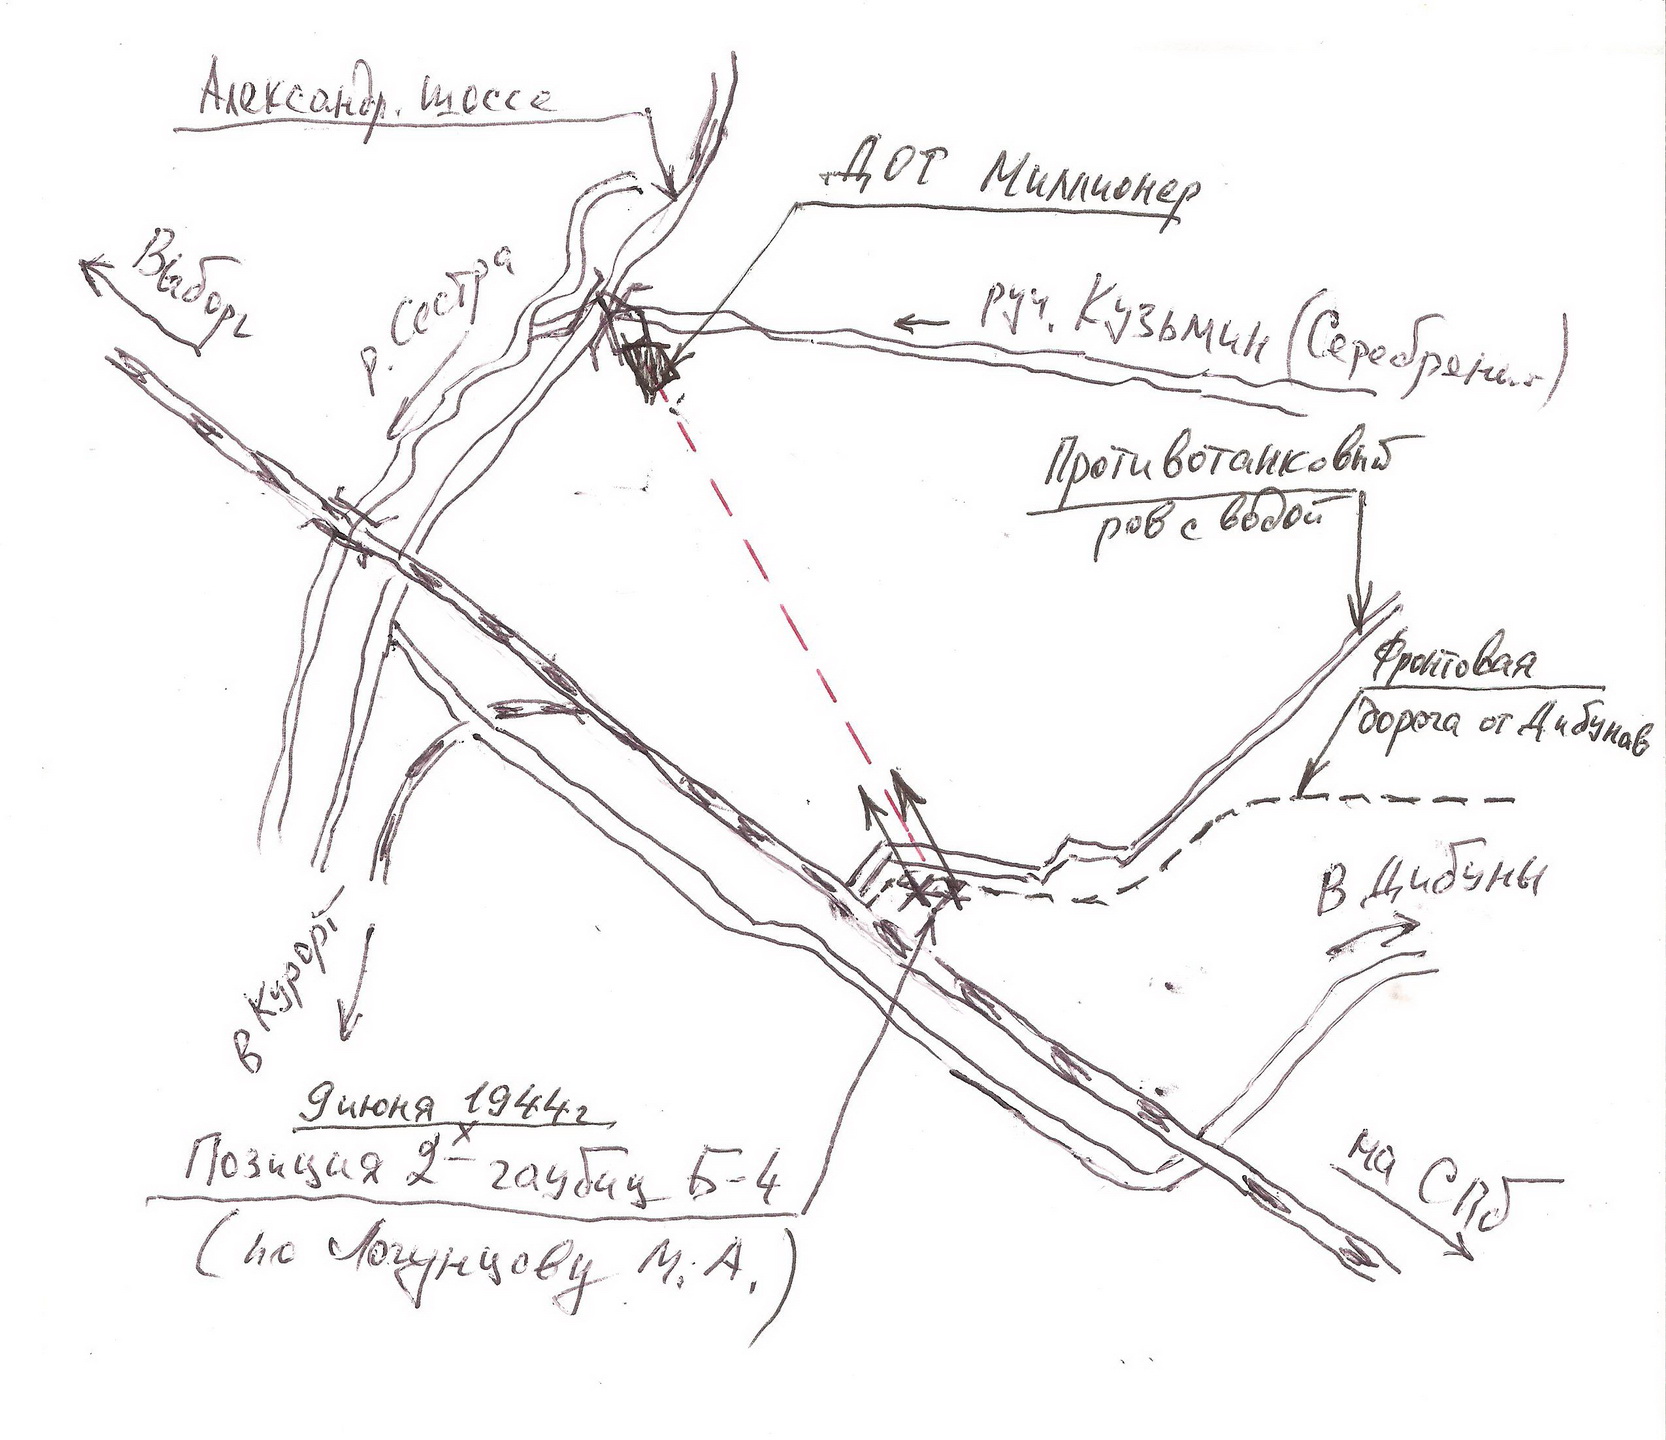 Александр. шоссе
ДОТ Миллионер
Выборг
р. Сестра
руч. Кузьмин (Серебрян..)
Противотанковый
ров с водой
Фронтовая
дорога от Дибунов
В Дибуны
в Курорт
9 июня 1944г
Позиция 2х гаубиц Б-4
(по Логунцову М.А.)
на СПб